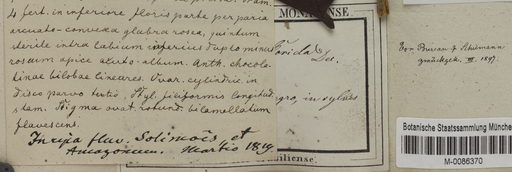 4 fert. in inferiore floris parte per paria
arcuato-convexa glabra rosea, quintum
sterile intra labium inferius duplo minus
roseum apice acuto-album. Anth. chocola-
tinae bilobae lineares. Ovar. cylindric. in
disco parvo tertiô. Styl. filiformis longitud.
stam. Stigma ovat. rotund. bilamellatum
flavescens.
In ripa fluv. Solimoës, et
Amazonum. Martio 1819.
MONACENSE.
florida DC.
in sylvis
siliense.
Von Bureau & Schumann
zurückgek. III. 1897.
Botanische Staatssammlung Münche
M-0086370